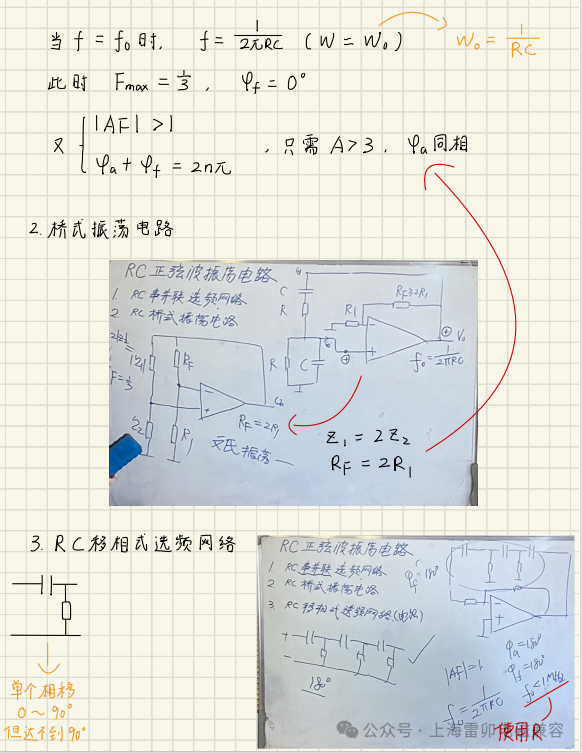 当 f = f₀ 时, f = 1/2πRC (W = W₀) W₀ = 1/RC
此时 Fmax = 1/3, φf = 0°
又 { |AF| > 1
φa + φf = 2nπ , 只需 A > 3, φa 同相
2. 桥式振荡电路
RC正弦波振荡电路
1. RC串并联选频网络
2 RC桥式振荡电路
C
R
R
C
R1
RF≥2R1
V₀
f₀ = 1/2πRC
Z1
RF
F = 1/3
Z2
R1
RF = 2R1
文氏振荡
Z₁ = 2Z₂
RF = 2R₁
3. RC移相式选频网络
RC正弦波振荡电路
1 RC串并联选频网络
2 RC桥式振荡电路
3 RC移相式选频网络(电路)
φf = 180°
180°
φa = 180°
|AF| = 1.
φf = 180°
f₀ = 1/2πRC
f₀ < 1MHz
使用R
单个相移
0 ~ 90°
但达不到90°
公众号 · 上海雷卯电磁兼容